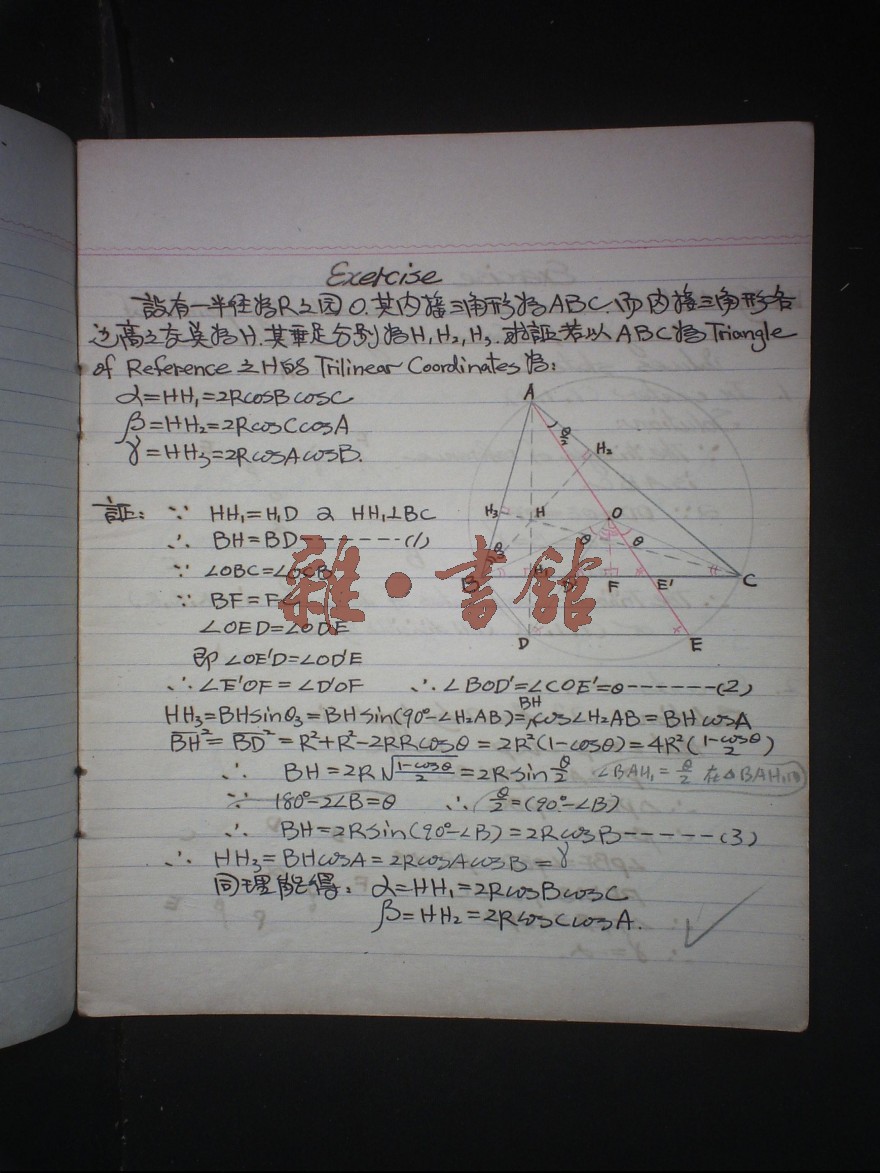 Exercise
設有一半径為R之园O.其内接三角形為ABC.而内接三角形各
边高之交点為H.其垂足分别為H₁H₂,H₃.求証若以ABC為Triangle
of Reference之H的Trilinear Coordinates為:
α=HH₁=2RcosBcosC
β=HH₂=2RcosCcosA
γ=HH₃=2RcosAcosB.
A
θ/2
H₂
H₃
H
O
θ/2
θ
θ
B
H₁
D'
F
E'
C
D
E
証: ∵ HH₁=H₁D 及 HH₁⊥BC
∴ BH=BD-------(1)
∵ ∠OBC=∠OCB
∵ BF=F
∠OED=∠ODE
即∠OE'D=∠OD'E
∴∠E'OF=∠D'OF ∴∠BOD'=∠COE'=θ------(2)
HH₃=BHsinθ₃=BHsin(90°-∠H₂AB)=BHcos∠H₂AB=BHcosA
BH²=BD²=R²+R²-2RRcosθ=2R²(1-cosθ)=4R²(1-cosθ/2)
∴ BH=2R√1-cosθ/2=2Rsinθ/2 ∠BAH₁=θ/2 在△BAH₁
∵ 180°-2∠B=θ ∴ θ/2=(90°-∠B)
∴ BH=2Rsin(90°-∠B)=2RcosB-----(3)
∴ HH₃=BHcosA=2RcosAcosB=γ
同理能得: α=HH₁=2RcosBcosC
β=HH₂=2RcosCcosA.
雜·書館